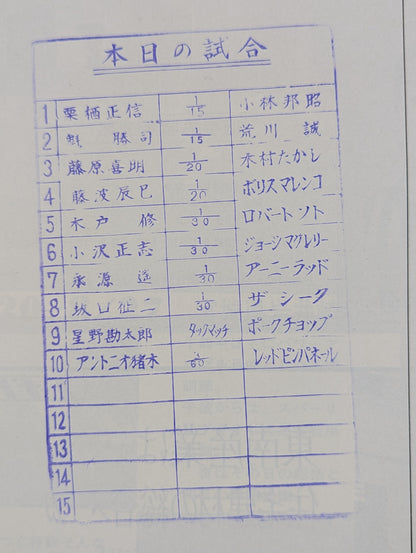 本日の試合
1 栗栖正信 1/15 小林邦昭
2 勝司 1/15 荒川 誠
3 藤原喜明 1/20 木村たかし
4 藤波辰巳 1/20 ボリスマレンコ
5 木戸 修 1/30 ロバートソト
6 小沢正志 1/30 ジョージマクレリー
7 永源 遙 1/30 アーニーラッド
8 坂口征二 1/30 ザシーク
9 星野勘太郎 タッグマッチ ポークチョップ
10 アントニオ猪木 1/60 レッドピンパネール
11
12
13
14
15